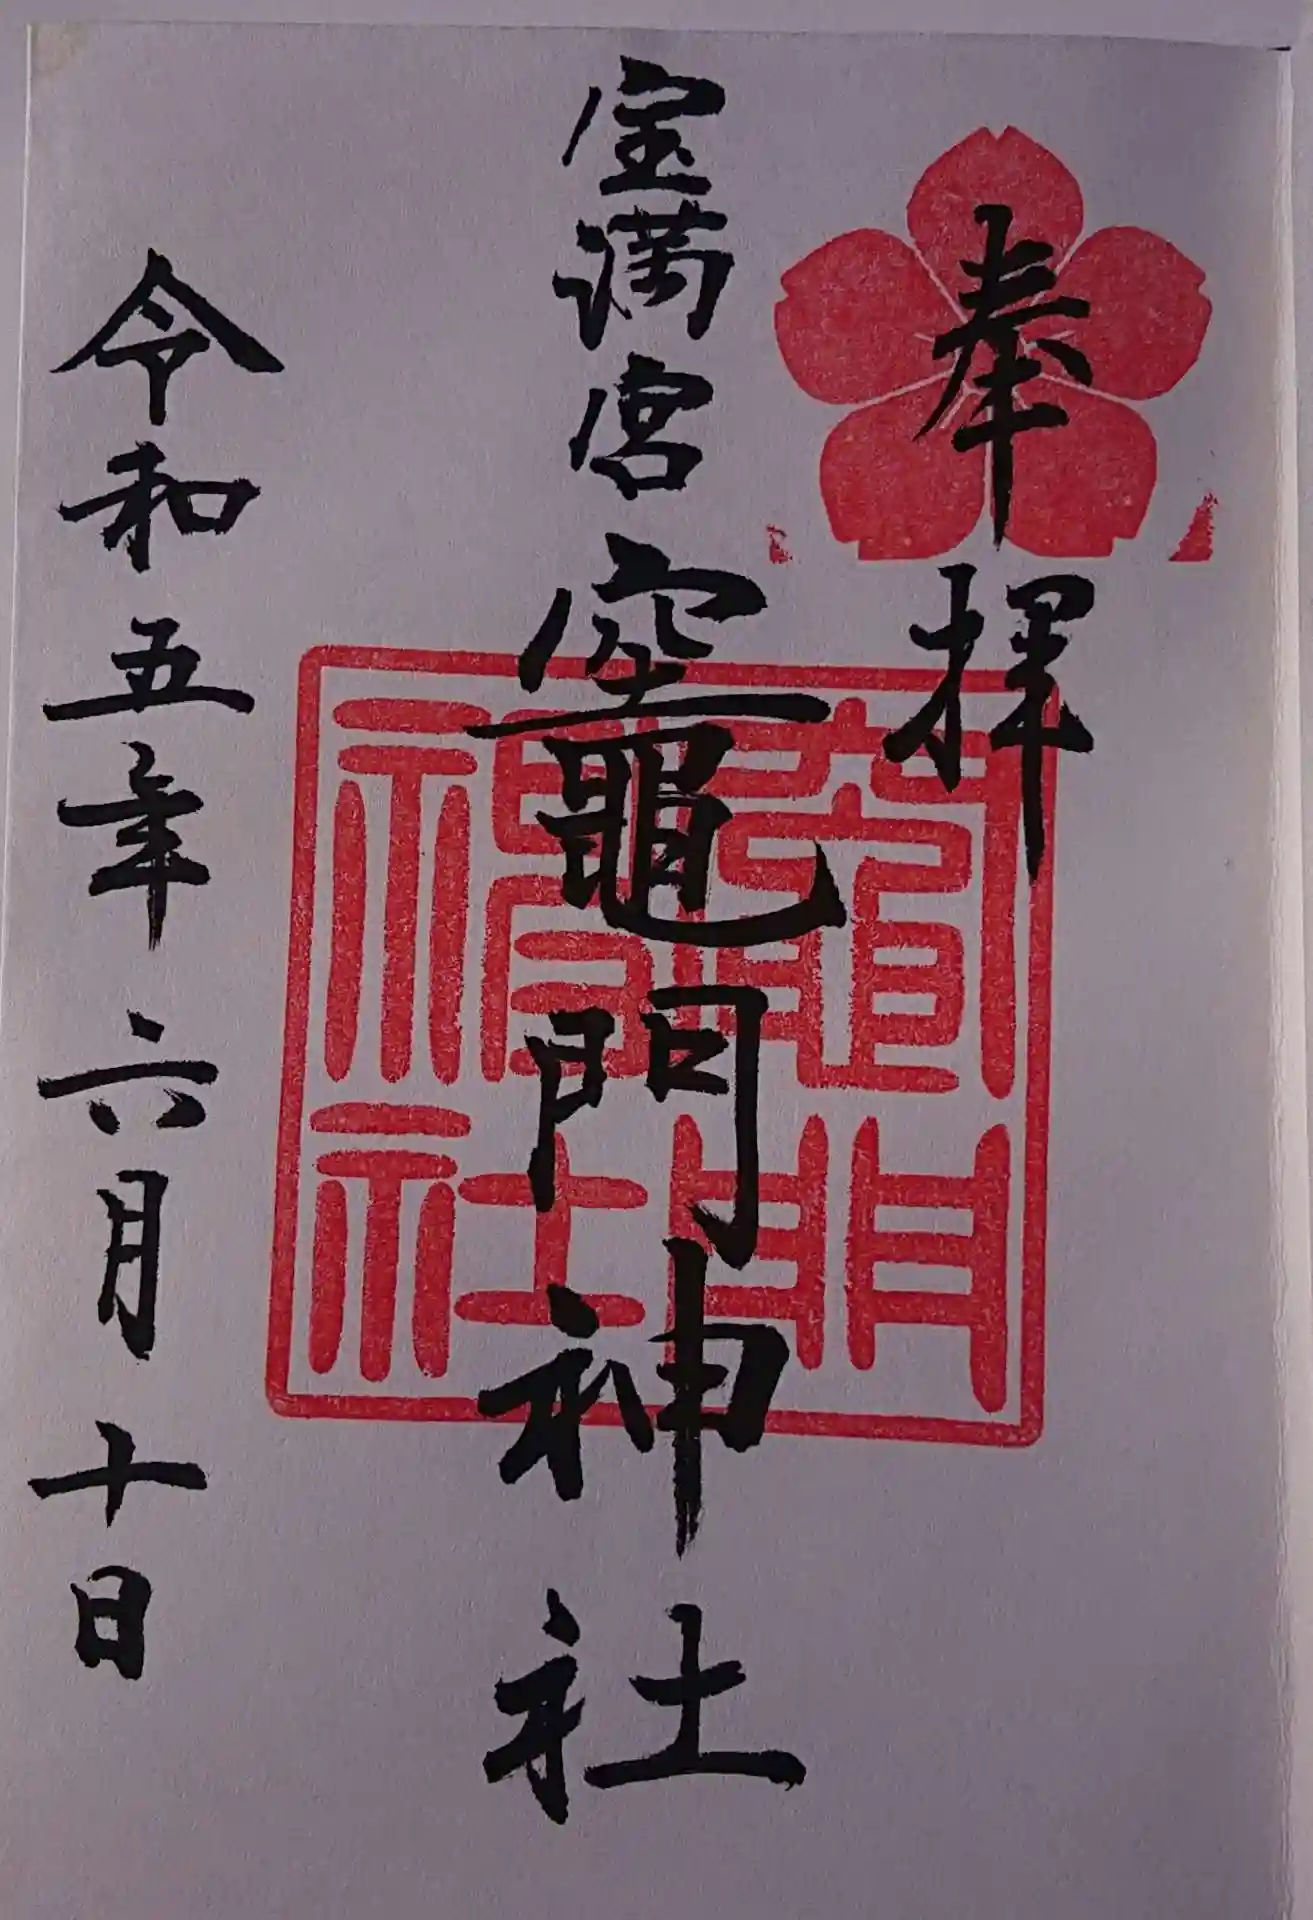 奉拝
宝満宮竈門神社
令和五年六月十日
竈門
神社